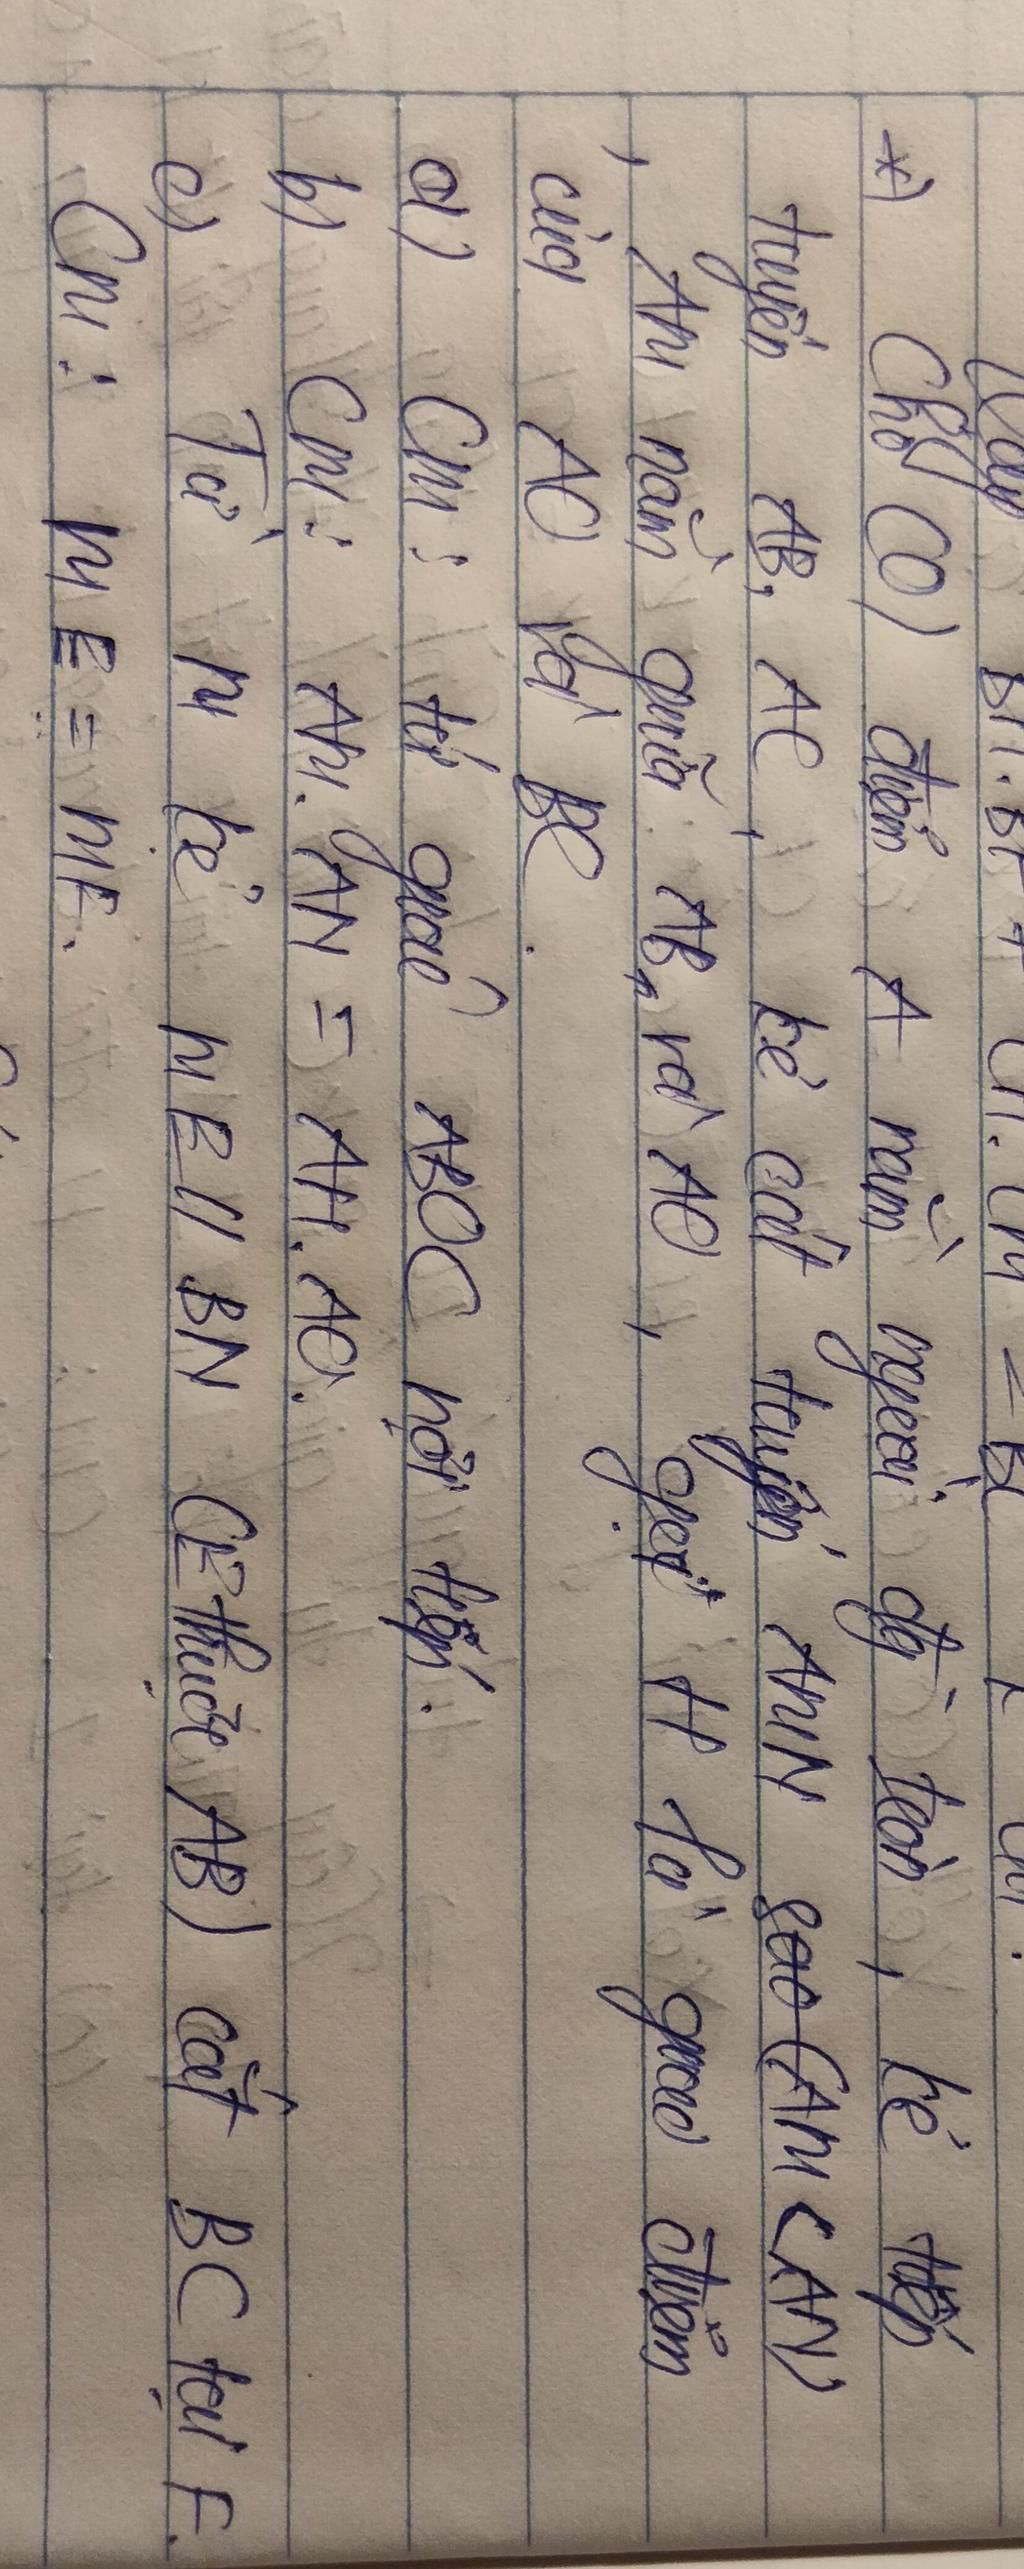 BH.BF + CH.CM = BC
*) Cho (O) điểm A nằm ngoài đg tròn, kẻ tiếp
tuyến AB, AC, kẻ cát tuyến AMN sao (AM < AN)
, AM nằm giữa AB, và AO, gọi H là giao điểm
của AO và BC.
a) Cm: tứ giác ABOC nội tiếp.
b) Cm: AM. AN = AH. AO.
c) Từ M kẻ ME // BN (E thuộc AB) cắt BC tại F.
Cm: ME = MF.